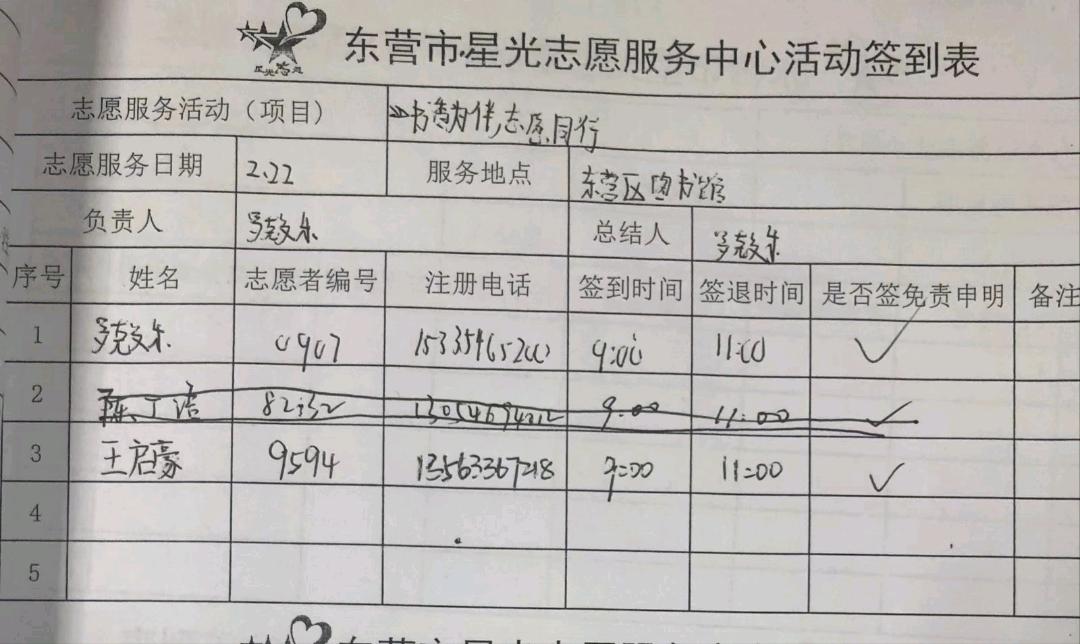 东营市星光志愿服务中心活动签到表
志愿服务活动（项目） 书香为伴,志愿同行
志愿服务日期 2.22 服务地点 东营区图书馆
负责人 总结人
序号 姓名 志愿者编号 注册电话 签到时间 签退时间 是否签免责申明 备注
1 0907 15335465200 9:00 11:00 ✓
2 陈丁浩 8232 9:00 11:00 ✓
3 王启豪 9594 13563367218 9:00 11:00 ✓
4
5